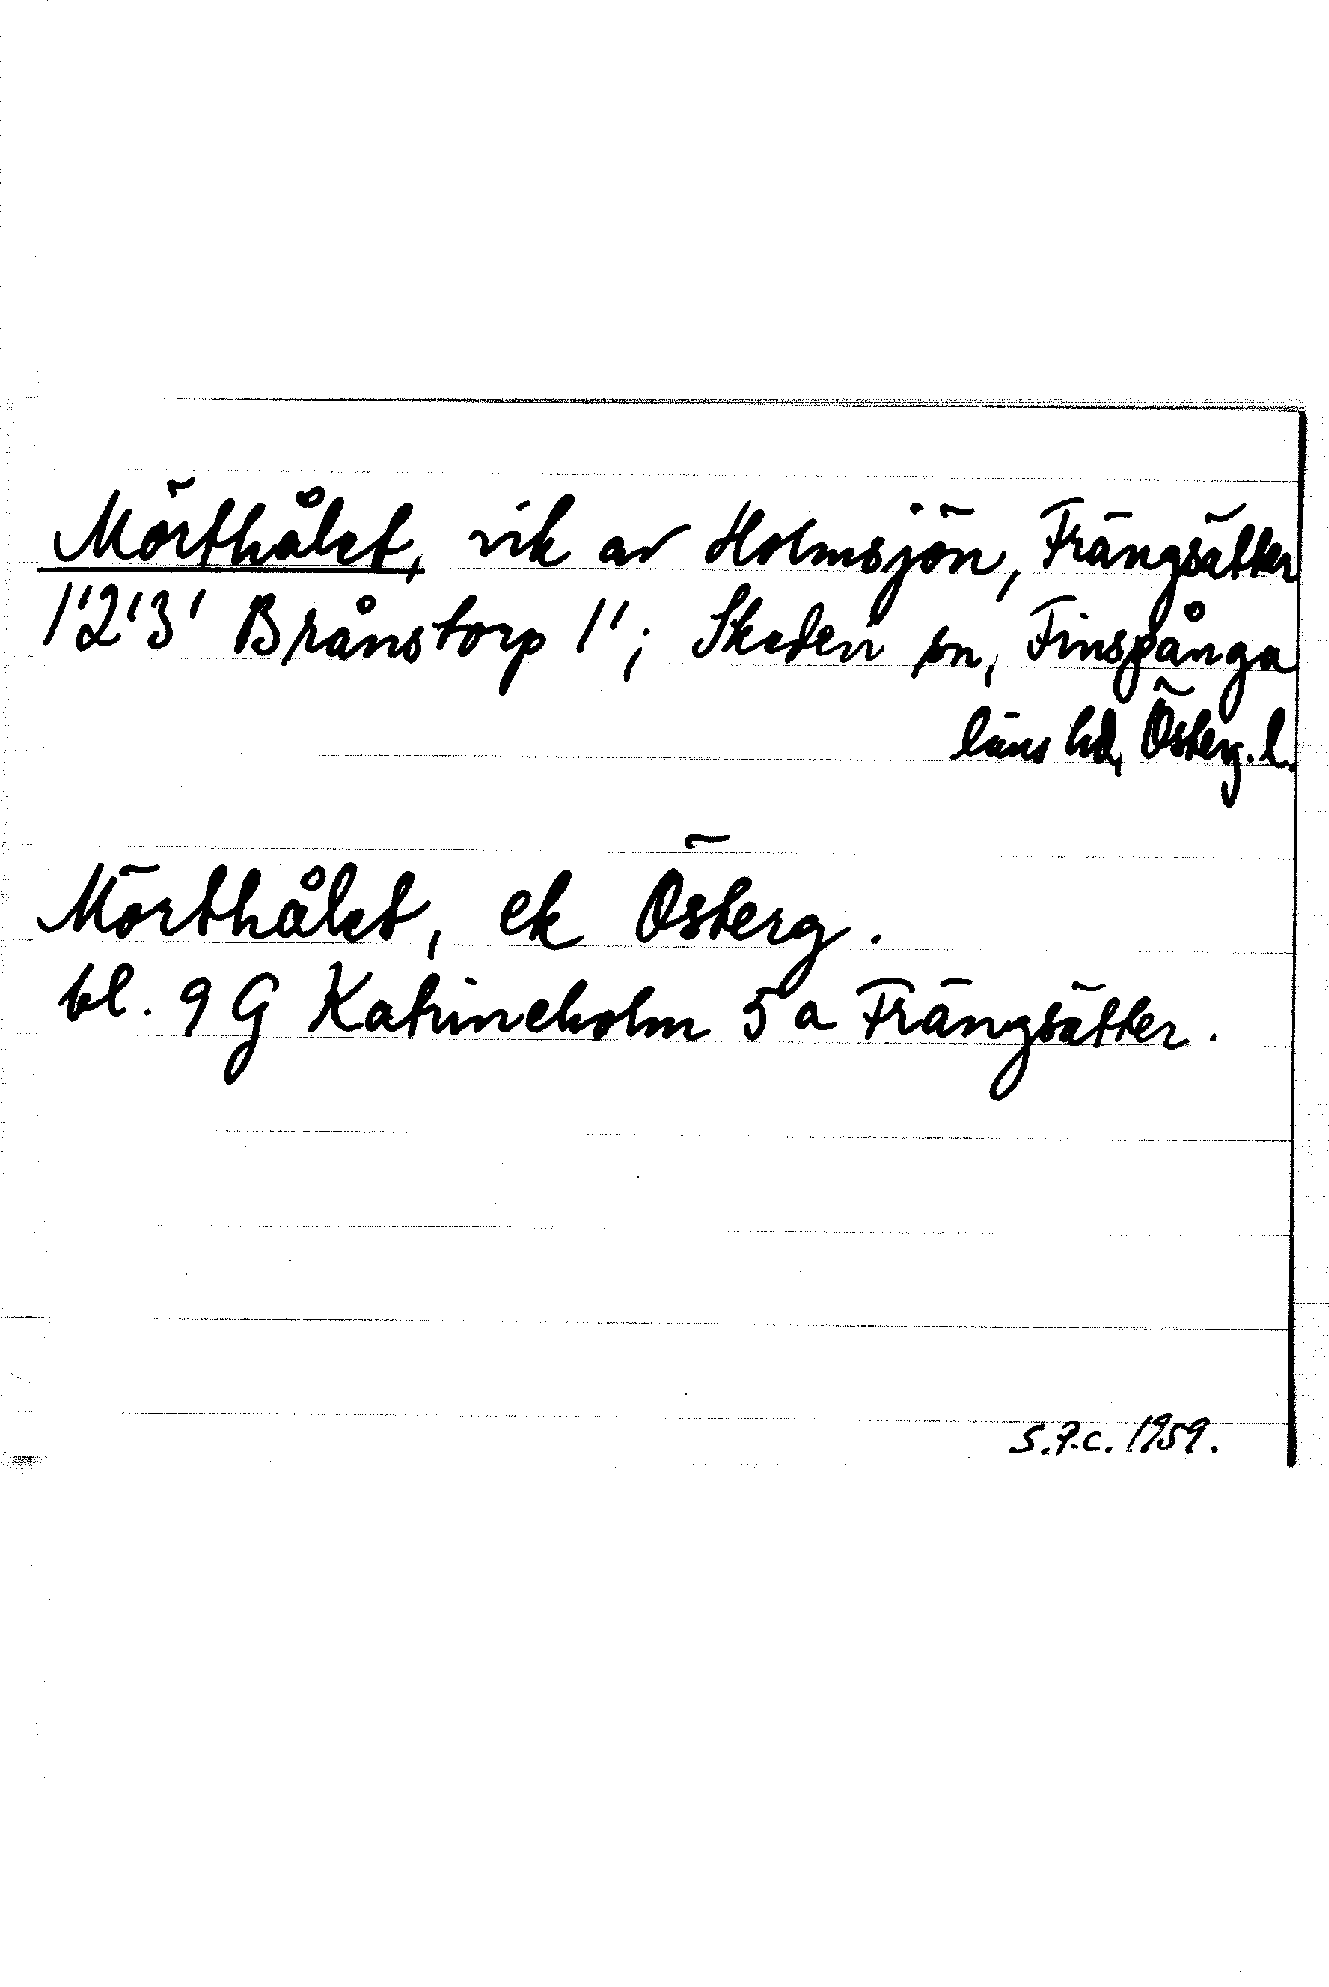 Mörthålet, vik av Holmsjön, Frängsätter
1'2'3' Brånstorp 1'; Skedevi sn, Finspånga
läns hd, Österg. l.
Mörthålet, ek Österg.
bl. 9 G Katrineholm 5 a Frängsätter.
S.F.C. 1959.